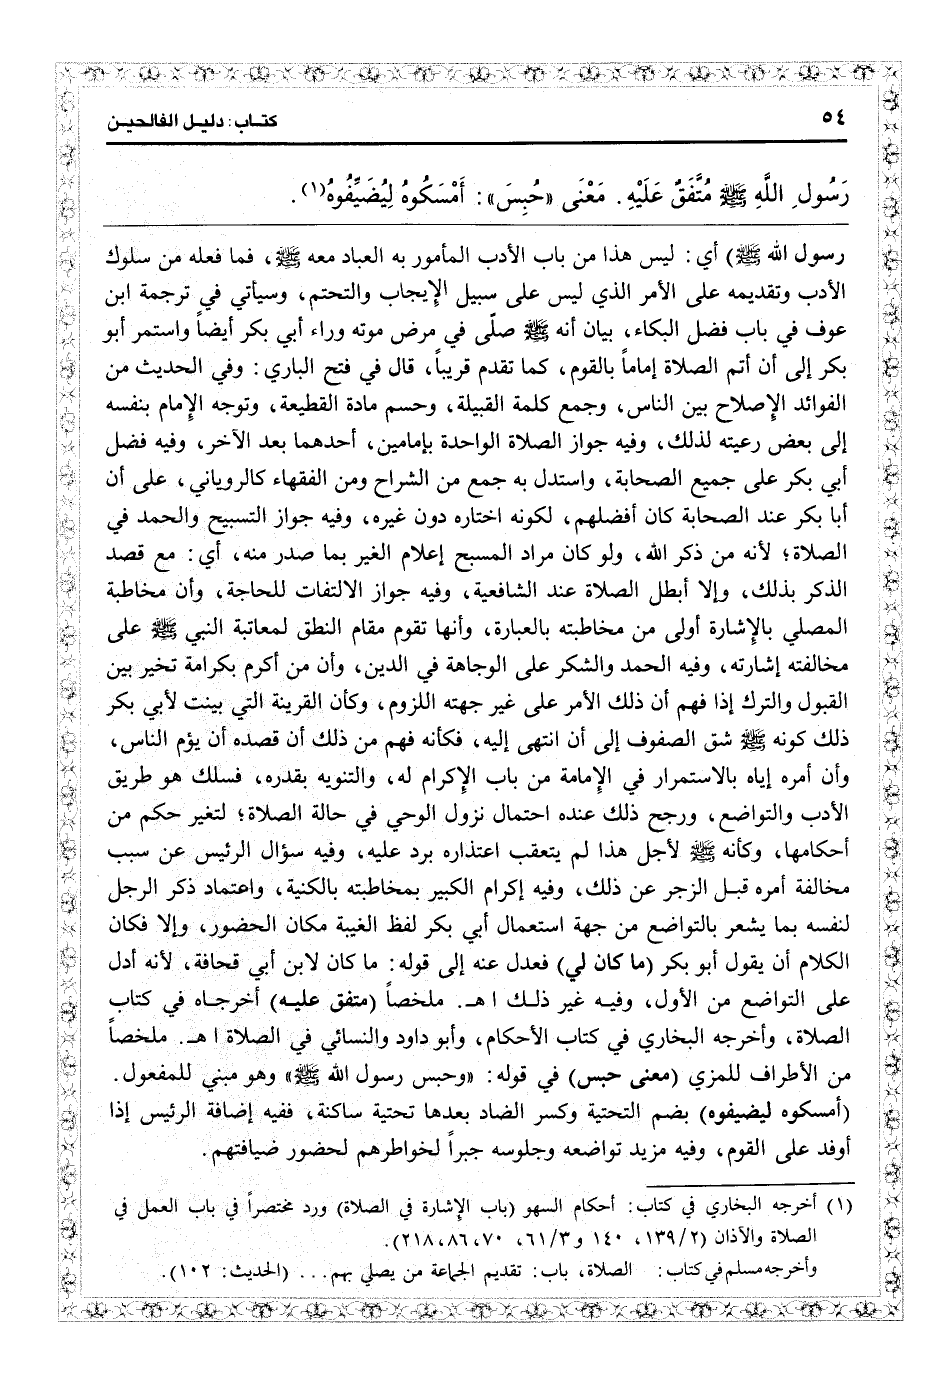 ٥٤
كتـاب: دليـل الفالحيـن
رَسُولِ اللَّهِ ﷺ مُتَّفَقٌ عَلَيْهِ. مَعْنَى «حُبِسَ»: أَمْسَكُوهُ لِيُضَيِّفُوهُ(١).
رسول الله ﷺ) أي: ليس هذا من باب الأدب المأمور به العباد معه ﷺ، فما فعله من سلوك
الأدب وتقديمه على الأمر الذي ليس على سبيل الإيجاب والتحتم، وسيأتي في ترجمة ابن
عوف في باب فضل البكاء، بيان أنه ﷺ صلّى في مرض موته وراء أبي بكر أيضاً واستمر أبو
بكر إلى أن أتم الصلاة إماماً بالقوم، كما تقدم قريباً، قال في فتح الباري: وفي الحديث من
الفوائد الإصلاح بين الناس، وجمع كلمة القبيلة، وحسم مادة القطيعة، وتوجه الإمام بنفسه
إلى بعض رعيته لذلك، وفيه جواز الصلاة الواحدة بإمامين، أحدهما بعد الآخر، وفيه فضل
أبي بكر على جميع الصحابة، واستدل به جمع من الشراح ومن الفقهاء كالروياني، على أن
أبا بكر عند الصحابة كان أفضلهم، لكونه اختاره دون غيره، وفيه جواز التسبيح والحمد في
الصلاة؛ لأنه من ذكر الله، ولو كان مراد المسبح إعلام الغير بما صدر منه، أي: مع قصد
الذكر بذلك، وإلا أبطل الصلاة عند الشافعية، وفيه جواز الالتفات للحاجة، وأن مخاطبة
المصلي بالإشارة أولى من مخاطبته بالعبارة، وأنها تقوم مقام النطق لمعاتبة النبي ﷺ على
مخالفته إشارته، وفيه الحمد والشكر على الوجاهة في الدين، وأن من أكرم بكرامة تخير بين
القبول والترك إذا فهم أن ذلك الأمر على غير جهته اللزوم، وكأن القرينة التي بينت لأبي بكر
ذلك كونه ﷺ شق الصفوف إلى أن انتهى إليه، فكأنه فهم من ذلك أن قصده أن يؤم الناس،
وأن أمره إياه بالاستمرار في الإمامة من باب الإكرام له، والتنويه بقدره، فسلك هو طريق
الأدب والتواضع، ورجح ذلك عنده احتمال نزول الوحي في حالة الصلاة؛ لتغير حكم من
أحكامها، وكأنه ﷺ لأجل هذا لم يتعقب اعتذاره برد عليه، وفيه سؤال الرئيس عن سبب
مخالفة أمره قبل الزجر عن ذلك، وفيه إكرام الكبير بمخاطبته بالكنية، واعتماد ذكر الرجل
لنفسه بما يشعر بالتواضع من جهة استعمال أبي بكر لفظ الغيبة مكان الحضور، وإلا فكان
الكلام أن يقول أبو بكر (ما كان لي) فعدل عنه إلى قوله: ما كان لابن أبي قحافة، لأنه أدل
على التواضع من الأول، وفيـه غير ذلـك ا هـ. ملخصاً (متفق عليـه) أخرجـاه في كتاب
الصلاة، وأخرجه البخاري في كتاب الأحكام، وأبو داود والنسائي في الصلاة ا هـ. ملخصاً
من الأطراف للمزي (معنى حبس) في قوله: «وحبس رسول الله ﷺ» وهو مبني للمفعول.
(أمسكوه ليضيفوه) بضم التحتية وكسر الضاد بعدها تحتية ساكنة، ففيه إضافة الرئيس إذا
أوفد على القوم، وفيه مزيد تواضعه وجلوسه جبراً لخواطرهم لحضور ضيافتهم.
(١) أخرجه البخاري في كتاب: أحكام السهو (باب الإشارة في الصلاة) ورد مختصراً في باب العمل في
الصلاة والآذان (١٣٩/٢، ١٤٠ و٦١/٣، ٧٠، ٨٦، ٢١٨).
وأخرجه مسلم في كتاب: الصلاة، باب: تقديم الجماعة من يصلي بهم... (الحديث: ١٠٢).